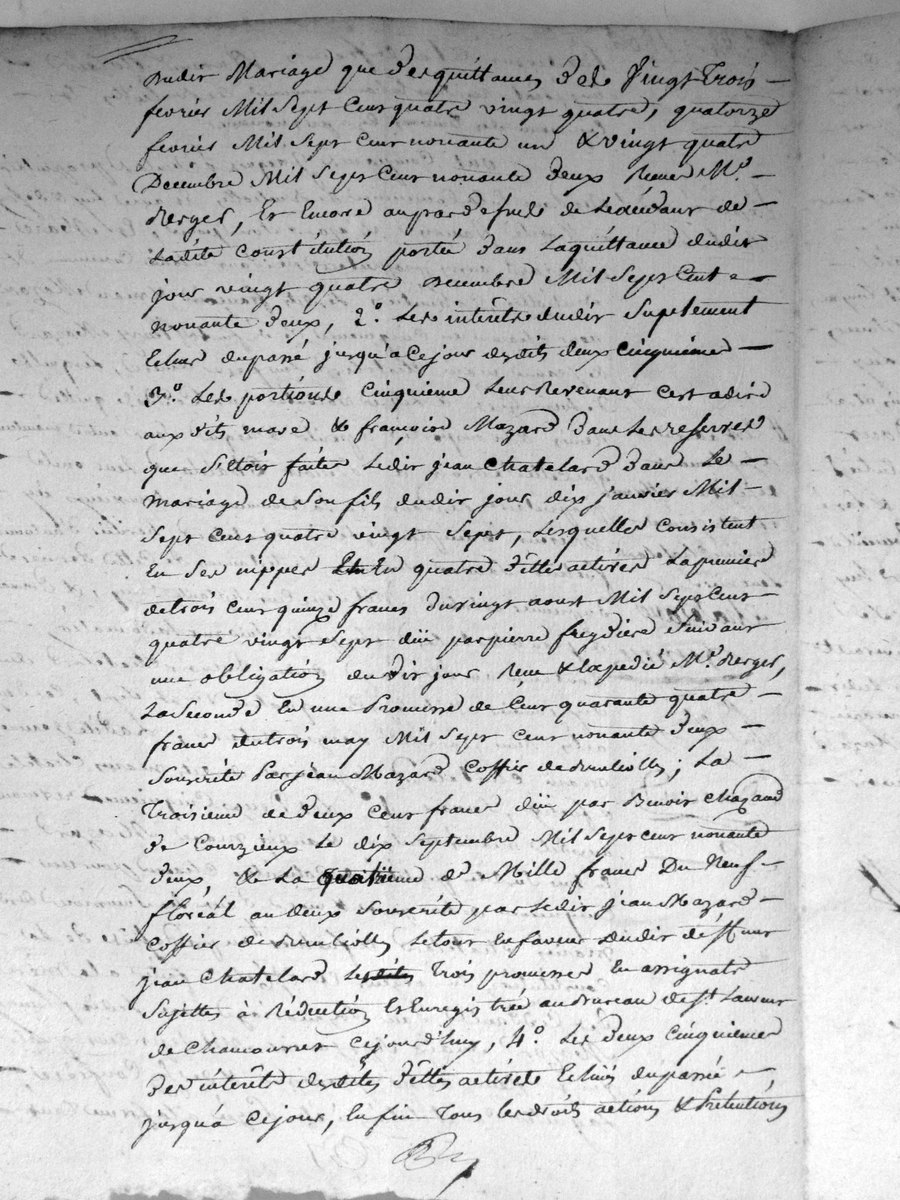 dudit Mariage que des quittances des Vingt Trois
fevrier Mil Sept Cent quatre vingt quatre, quatorze
fevrier Mil Sept Cent nonante un & vingt quatre
Decembre Mil Sept Cent nonante deux Reçues Mr.
Berger, Et Encore au par de de
Ladite constitution portée dans La quittance dudit
jour vingt quatre Decembre Mil Sept Cent
nonante deux, 2o. Les interets dudit Suplement
Echus du passé jusqu'a ce jour desdits deux cinquieme
3o. Les portions cinquieme Leur Revenant c'est a dire
aux dits & francoise Mazard dans Les reserves
que S'etoit faites Ledit jean Chatelard dans Le
Mariage de Son fils dudit jour dix janvier Mil
Sept Cent quatre vingt Sept, Lesquelles Consistent
En Ses nippes En quatre dettes actives La premiere
de trois Cent quinze francs du vingt aoust Mil Sept Cent
quatre vingt Sept düe par pierre freydiere Suivant
une obligation dudit jour Reçue & Expedié Mr. Berger,
La Seconde En une Promesse de Cent quarante quatre
francs du trois may Mil Sept Cent nonante deux
Souscrite Par jean Mazard Coffier de ; La
Troisieme de deux Cent francs düe par Benoit Chazaud
de Courzieux Le dix Septembre Mil Sept Cent nonante
deux, & La quatrieme de Mille francs Du Neuf
floréal an deux Souscrite par Ledit jean Mazard
Coffier de Le tout En faveur dudit deffunt
jean Chatelard Lesdites Trois promesses En assignats
Sujettes à Réduction Et Enregistrée au Bureau de St. Laurent
de Chamousset Cejourd'huy, 4o. Les deux Cinquiemes
des interets desdites dettes actives Echus du passé
jusqu'a Ce jour, Enfin Tous Les droits actions & Pretentions